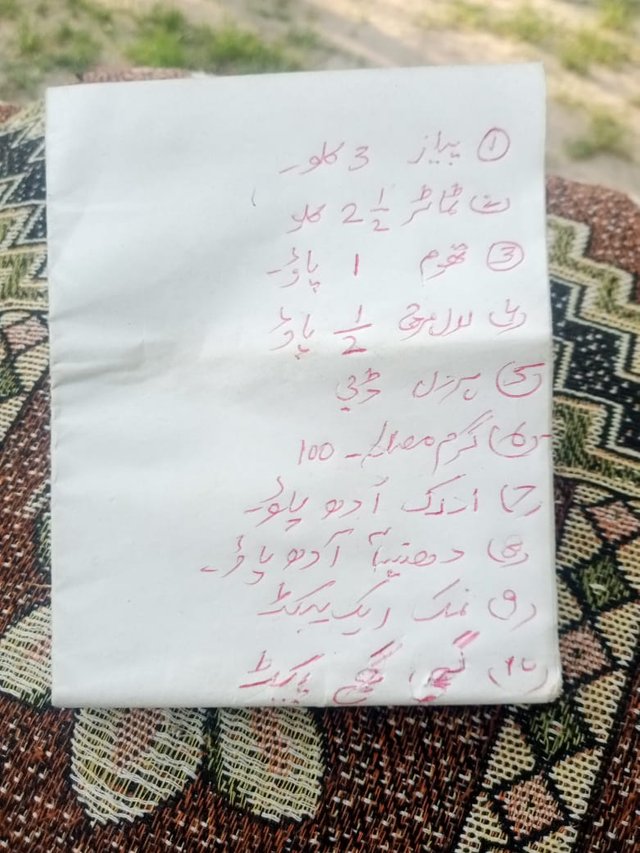 ① پیاز 3 کلو۔
② ٹماٹر 2 1/2 کلو
③ تھوم 1 پاؤ۔
④ لال مرچ 1/2 پاؤ
⑤ ڈبی
⑥ گرم مصالہ۔ 100
⑦ ادرک آدھ پاؤ۔
⑧ دھنیا آدھ پاؤ۔
⑨ نمک ایک پیکٹ
⑩ گھی پیکٹ